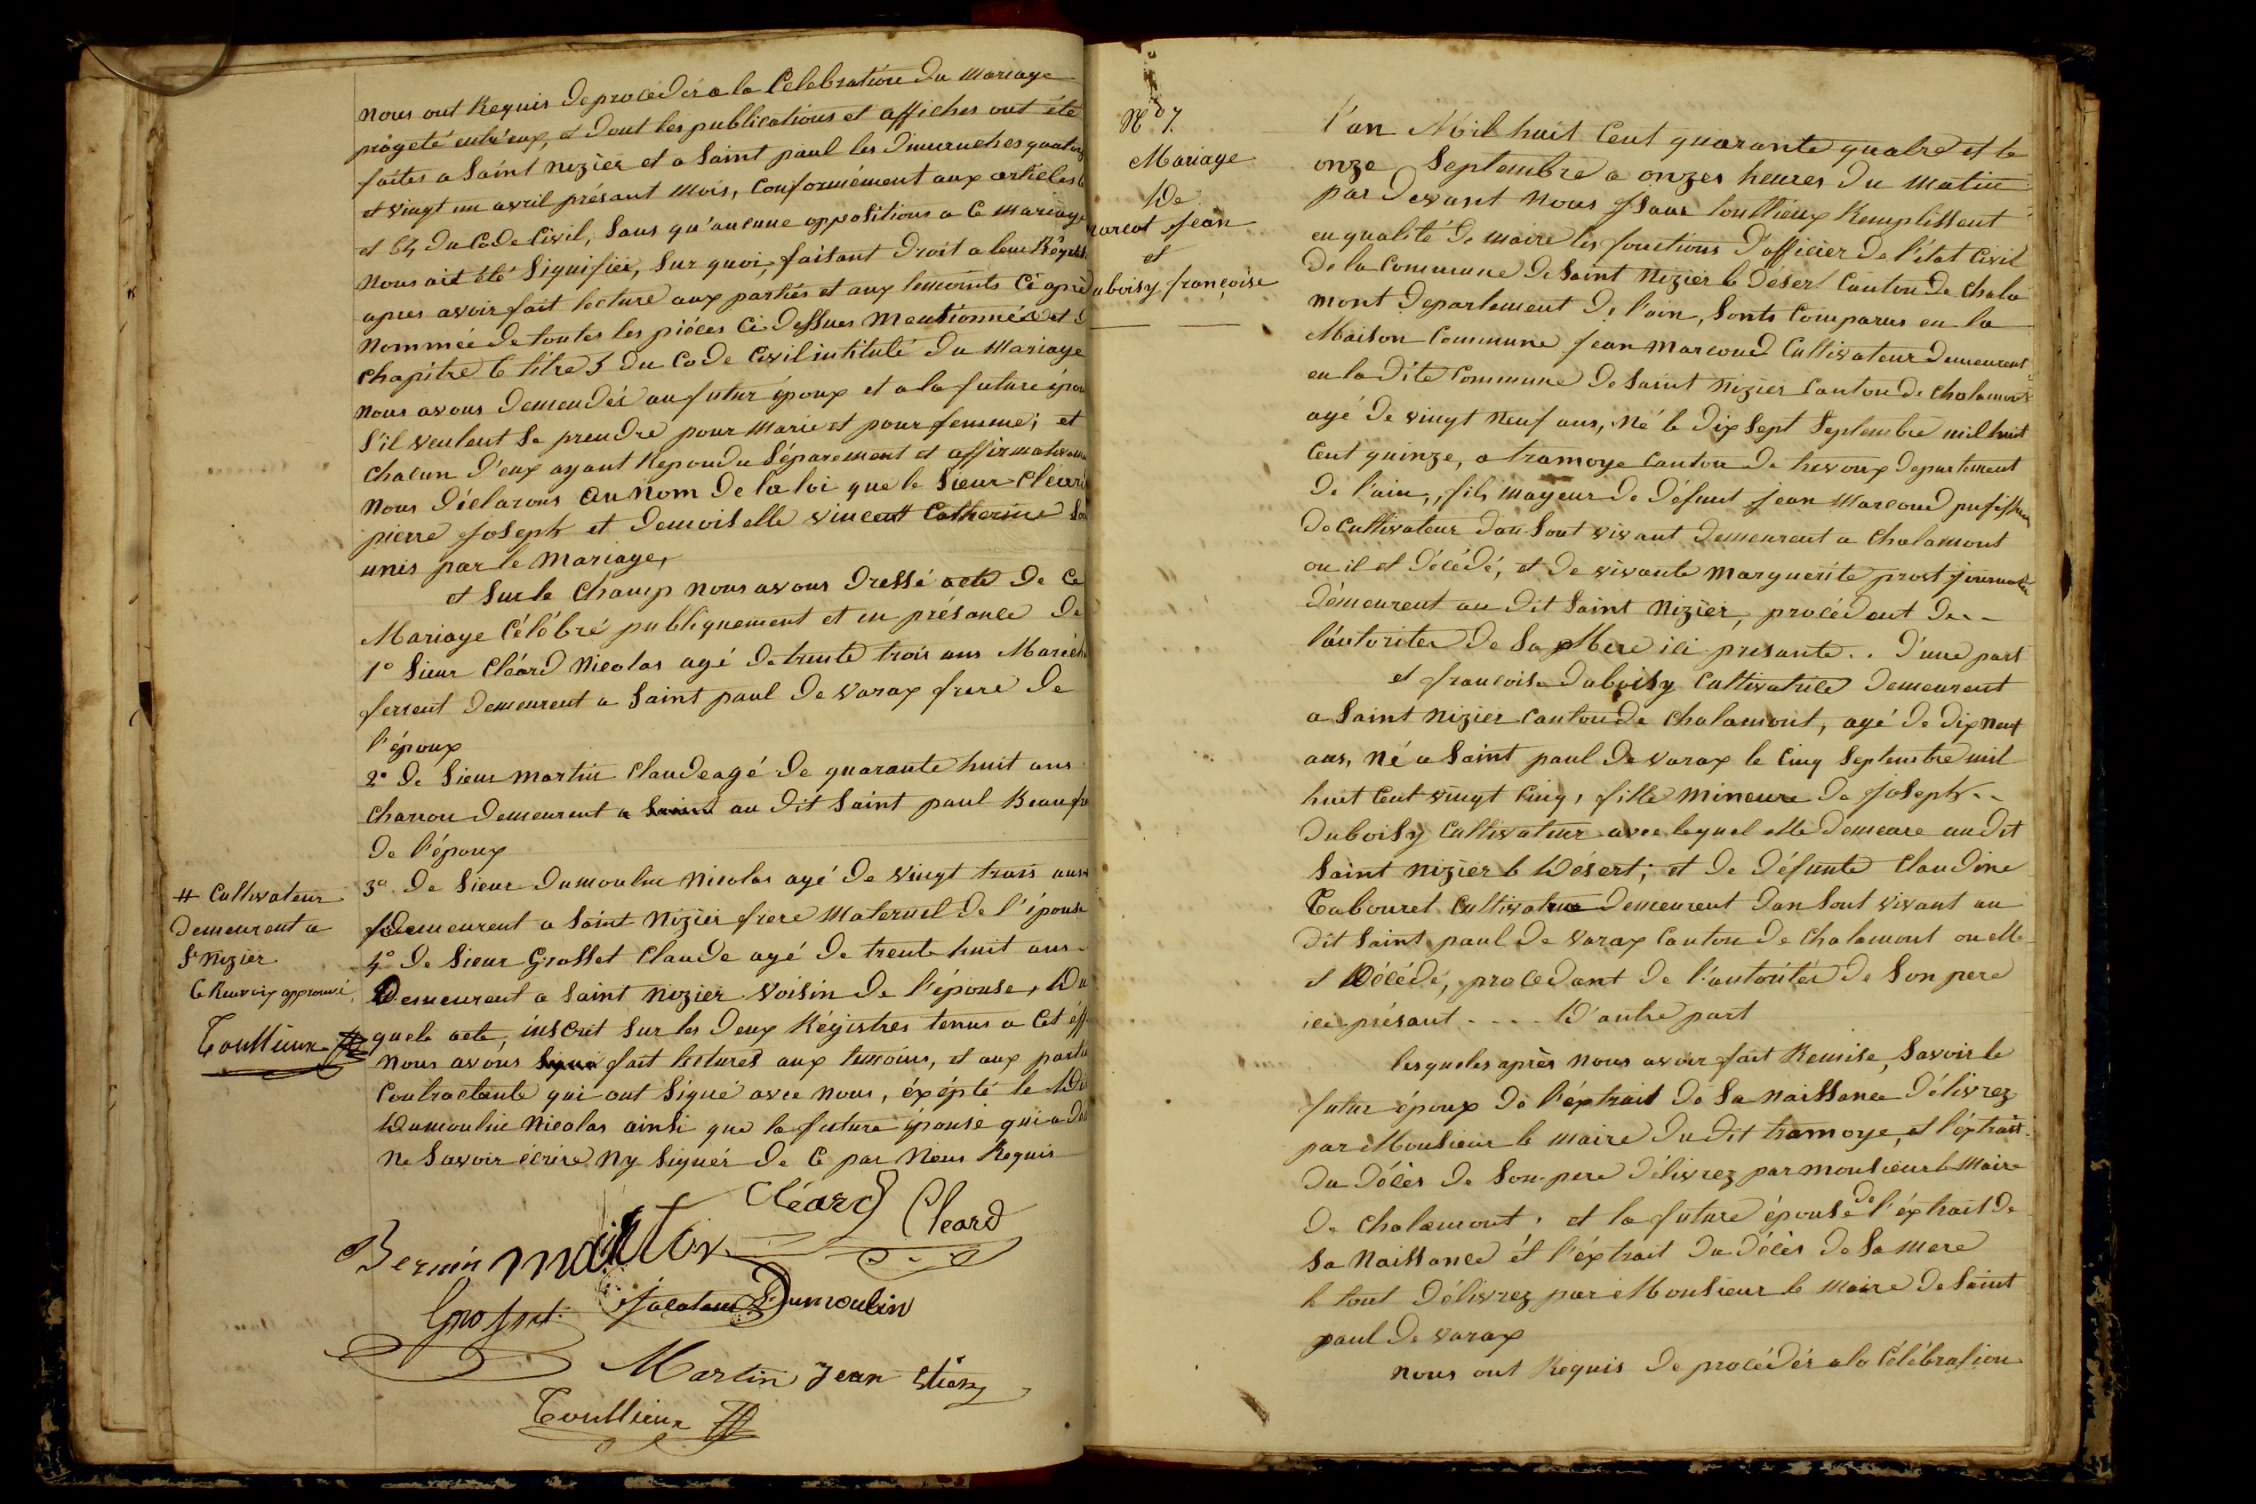 nous ont Requis de procéder a la Célébration du mariage
projeté entr'eux, et dont les publications et affiches ont été
faites a Saint nizier et a Saint paul les dimenches
et vingt un avril présant mois, Conformément aux articles
et 64 du Code Civil, Sans qu'aucune oppositions a Ce mariage
Nous ait été Signifiée, Sur quoi, faisant droit a leur
apres avoir fait lecture aux parties et aux temoints Ci
Nommée de toutes les piéces Ci dessues Mentionnée et
chapitre 6 titre 5 du Code Civil intitulé du Mariage
nous avons demendér au futur époux et a la future
S'il veulent se prendre pour Marie et pour femme; et
chacun d'eux ayant Repondu Séparement et
nous déclarons au nom de la loi que le Sieur Cléard
pierre Joseph et demoiselle vincent Catherine
unis par le Mariage,
et Sur le Champ nous avons dressé acte de Ce
Mariage Célébré publiquement et en présance de
1° Sieur Cléard Nicolas agé de trente trois ans
ferrent demeurent a Saint paul de varax frere de
l'époux
2° de Sieur martin Claude agé de quarante huit ans
Charron demeurent a au dit Saint paul
de l'époux
3° de Sieur dumoulin Nicolas agé de vingt trois ans
demeurent a Saint Nizier frere Maternel de l'épouse
4° de Sieur Grosset Claude agé de trente huit ans
Demeurent a Saint Nizier voisin de l'épouse, Du
quele acte, inscrit Sur les deux Régistres tenus a Cet
nous avons fait lectures aux temoins, et aux
Contractente qui ont Signé avec nous, éxépté le
Dumoulin Nicolas ainsi que la future épouse qui
Ne Savoir écrire ny Signér de Ce par Nous Requis
# Cultivateur
demeurent a
St Nizier
le Renvoix approuvé
Toullieux
Cléard Cleard
Bernin
Grosset Dumoulin
Martin Jean
Toullieux
N° 7.
Mariage
De
arcot Jean
et
uboisy françoise
l'an Mil huit Cent quarante quatre et le
onze Septembre a onzes heures du matin
par devant nous Toullieux Remplissent
en qualité de maire les fonctions d'officier de l'état Civil
de la Commune de Saint Nizier le Désert Canton de Chala
mont departement de l'ain, Sonts Comparus en la
Maison Commune Jean Marcoud Cultivateur demeurent
en la dite Commune de Saint Nizier Canton de Chalamont
agé de vingt neuf ans, Né le dix Sept Septembre mil huit
Cent quinze, a tramoye Canton de trevoux departement
de l'ain, fils mayeur de défunt Jean Marcoud
de Cultivateur dan Sont vivant demeurent a Chalamont
ou il et décédé, et de vivante Marguerite prost
démeurent au dit Saint Nizier, procédent de
l'autoritée de Sa Mere ici presante . . d'une part
et françoise duboisy Cultivatrice demeurent
a Saint nizier Canton de Chalamont, agé de dix Neuf
ans, Né a Saint paul de varax le Cinq Septembre mil
huit Cent vingt Cinq, fille Mineure de Joseph . .
duboisy Cultivateur avec lequel elle demeure au dit
Saint Nizier le Désert; et de défunte Claudine
Tabouret Cultivatrice demeurent dan Sont vivant au
dit Saint paul de varax Canton de Chalamont ou elle
et Décédé, procédant de l'autoritée de Son pere
ici présant . . . . D'autre part
lesqueles après nous avoir fait Remise, Savoir le
futur époux de l'éxtrait de Sa naissance délivrez
par Monsieur le maire du dit tramoye, et l'éxtrait
du décès de Son pere délivrez par monsieur le Maire
de Chalamont, et la future épouse de l'éxtrait de
Sa Naissance et l'éxtrait du décès de Sa mere
le tout délivrez par Monsieur le Maire de Saint
paul de varax
nous ont Requis de procédér a la Célébration